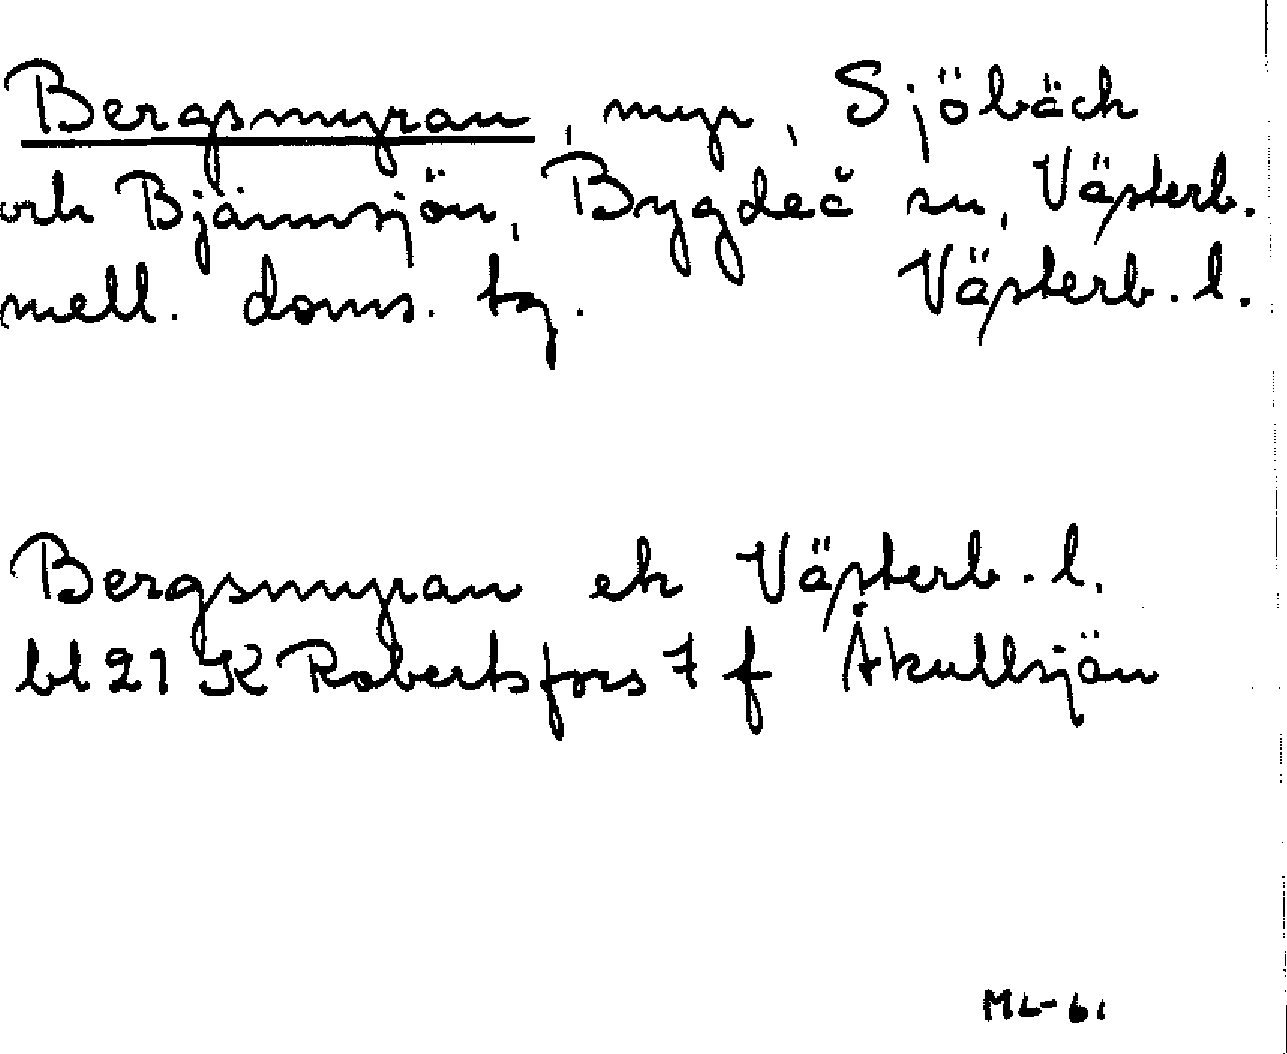 Bergsmyran, myr, Sjöbäck
och Bjännsjön, Bygdeå sn, Västerb.
mell. doms. tg. Västerb. l.
Bergsmyran ek Västerb. l.
bl 21 K Robertsfors 7 f Åkullsjön
ML-61